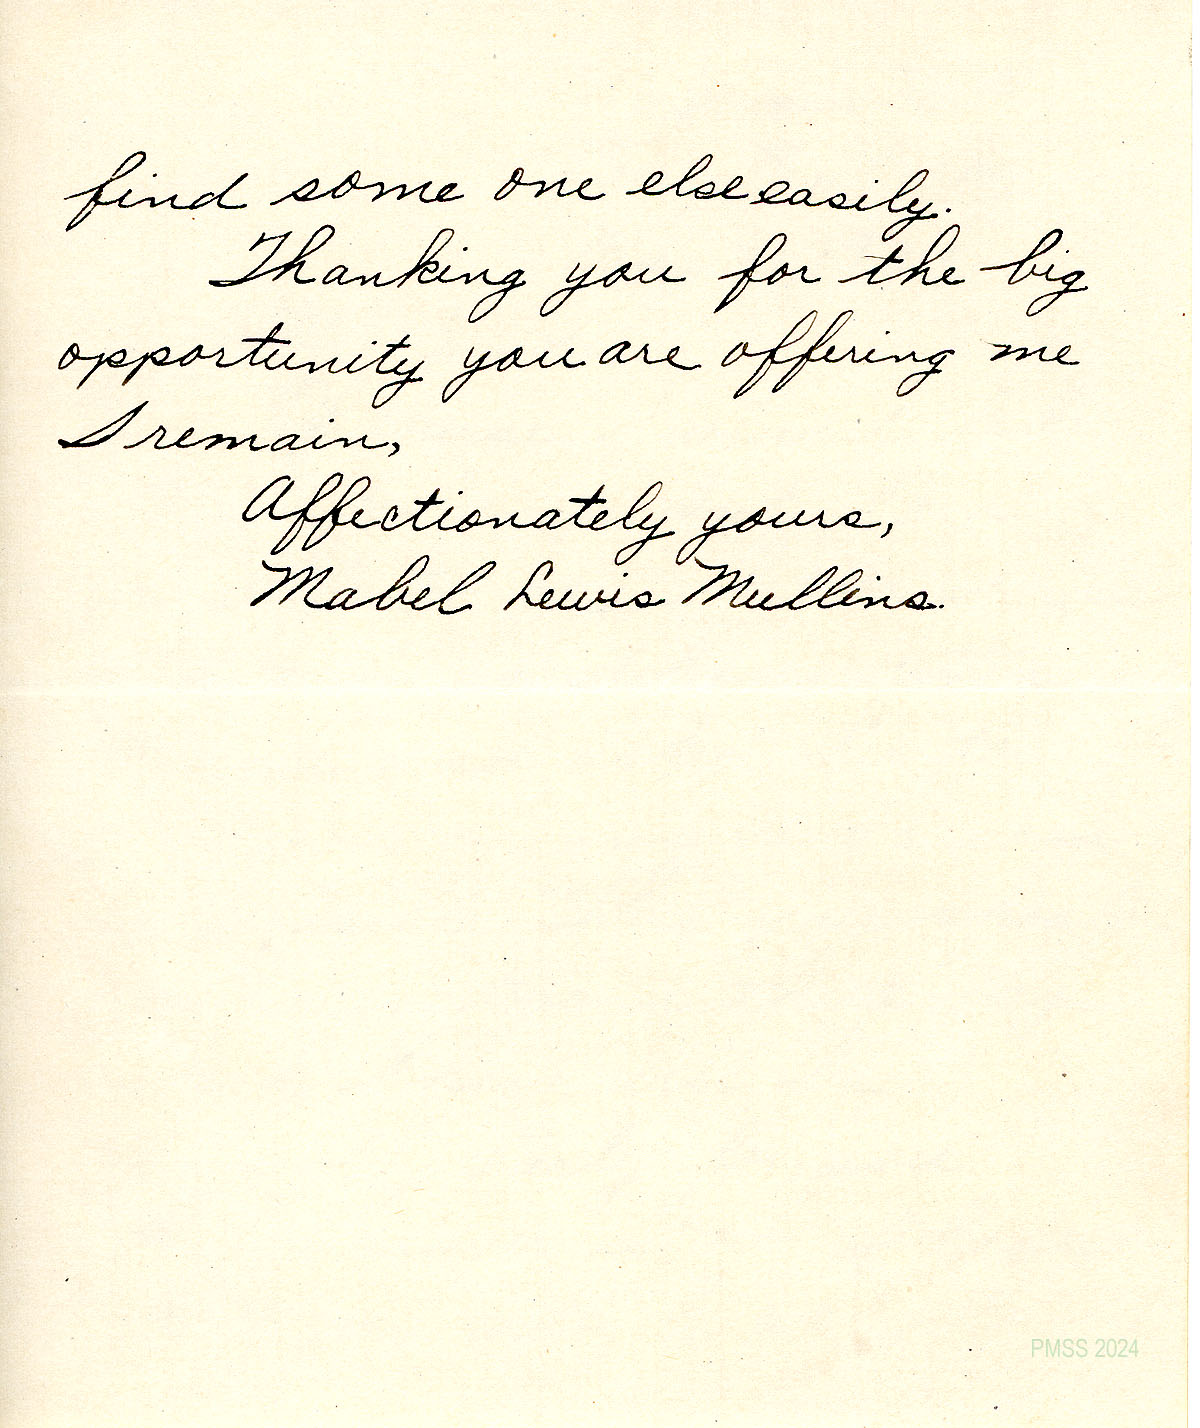 find some one else easily.
Thanking you for the big
opportunity you are offering me
I remain,
Affectionately yours,
Mabel Lewis Mullins.
PMSS 2024